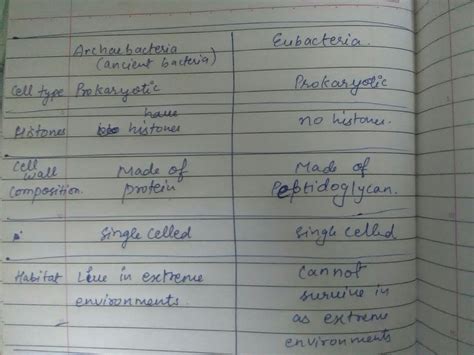 Archaebacteria
(ancient bacteria)
Eubacteria.
Cell type Prokaryotic
Prokaryotic
Histones
have
histones
no histones.
Cell
wall
composition.
Made of
protein
Made of
Peptidoglycan.
Single Celled
Single Celled
Habitat
Live in extreme
environments.
Cannot
survive in
as extreme
environments